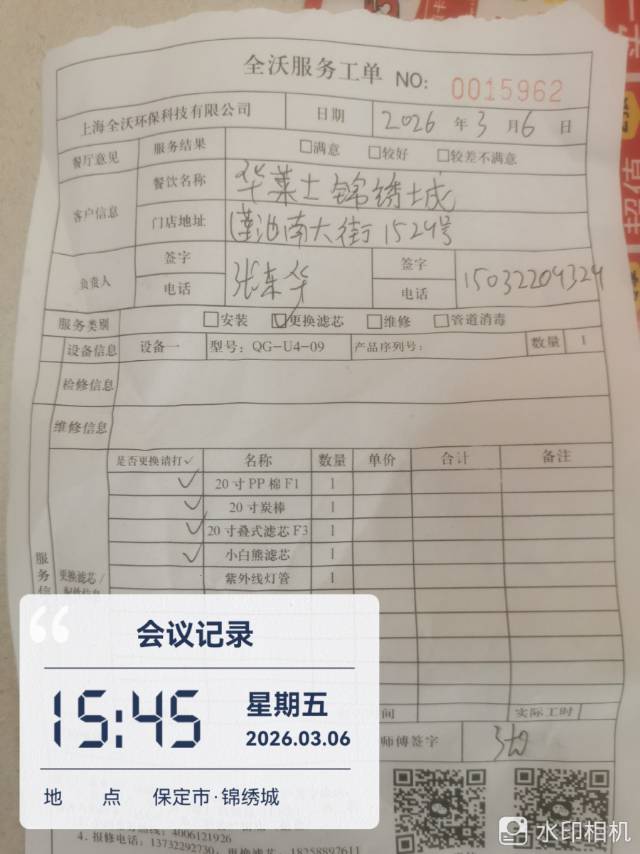 全沃服务工单 NO: 0015962
上海全沃环保科技有限公司 日期 2026 年 3 月 6 日
餐厅意见 服务结果 □满意 □较好 □较差不满意
客户信息 餐饮名称 华莱士锦绣城
门店地址 莲池南大街1524号
负责人 签字 电话 张东华 签字 电话 15032204324
服务类别 □安装 ☑更换滤芯 □维修 □管道消毒
设备信息 设备一 型号: QG-U4-09 产品序列号: 数量 1
检修信息
维修信息
是否更换请打✓ 名称 数量 单价 合计 备注
✓ 20寸PP棉F1 1
✓ 20寸炭棒 1
✓ 20寸叠式滤芯F3 1
✓ 小白熊滤芯 1
紫外线灯管 1
服务信
更换滤芯/
间 实际工时
师傅签字
会议记录
15:45
星期五
2026.03.06
地 点 保定市·锦绣城
4006121926
4. 报修电话: 13732292730, 18258897611
水印相机